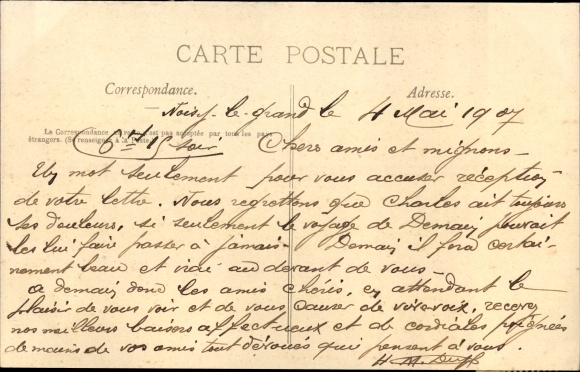 CARTE POSTALE
Correspondance. Adresse.
Noisy-le-grand le 4 Mai 1907
La Correspondance au recto n'est pas acceptée par tous les pays
étrangers. (Se renseigner à la Poste).
6h soir Chers amis et mignons-
Un mot seulement pour vous accuser réception
de votre lettre. Nous regrettons que Charles ait toujours
ses douleurs, si seulement le voyage de Demain pouvait
les lui faire passer à jamais- Demain il fera certai
nement beau et irai au devant de vous-
a demain donc les amis chéris, en attendant le
plaisir de vous voir et de vous causer de vive voix, recevez
nos meilleurs baisers affectueux et de cordiales poignées
de mains de vos amis tout dévoués qui pensent à vous.